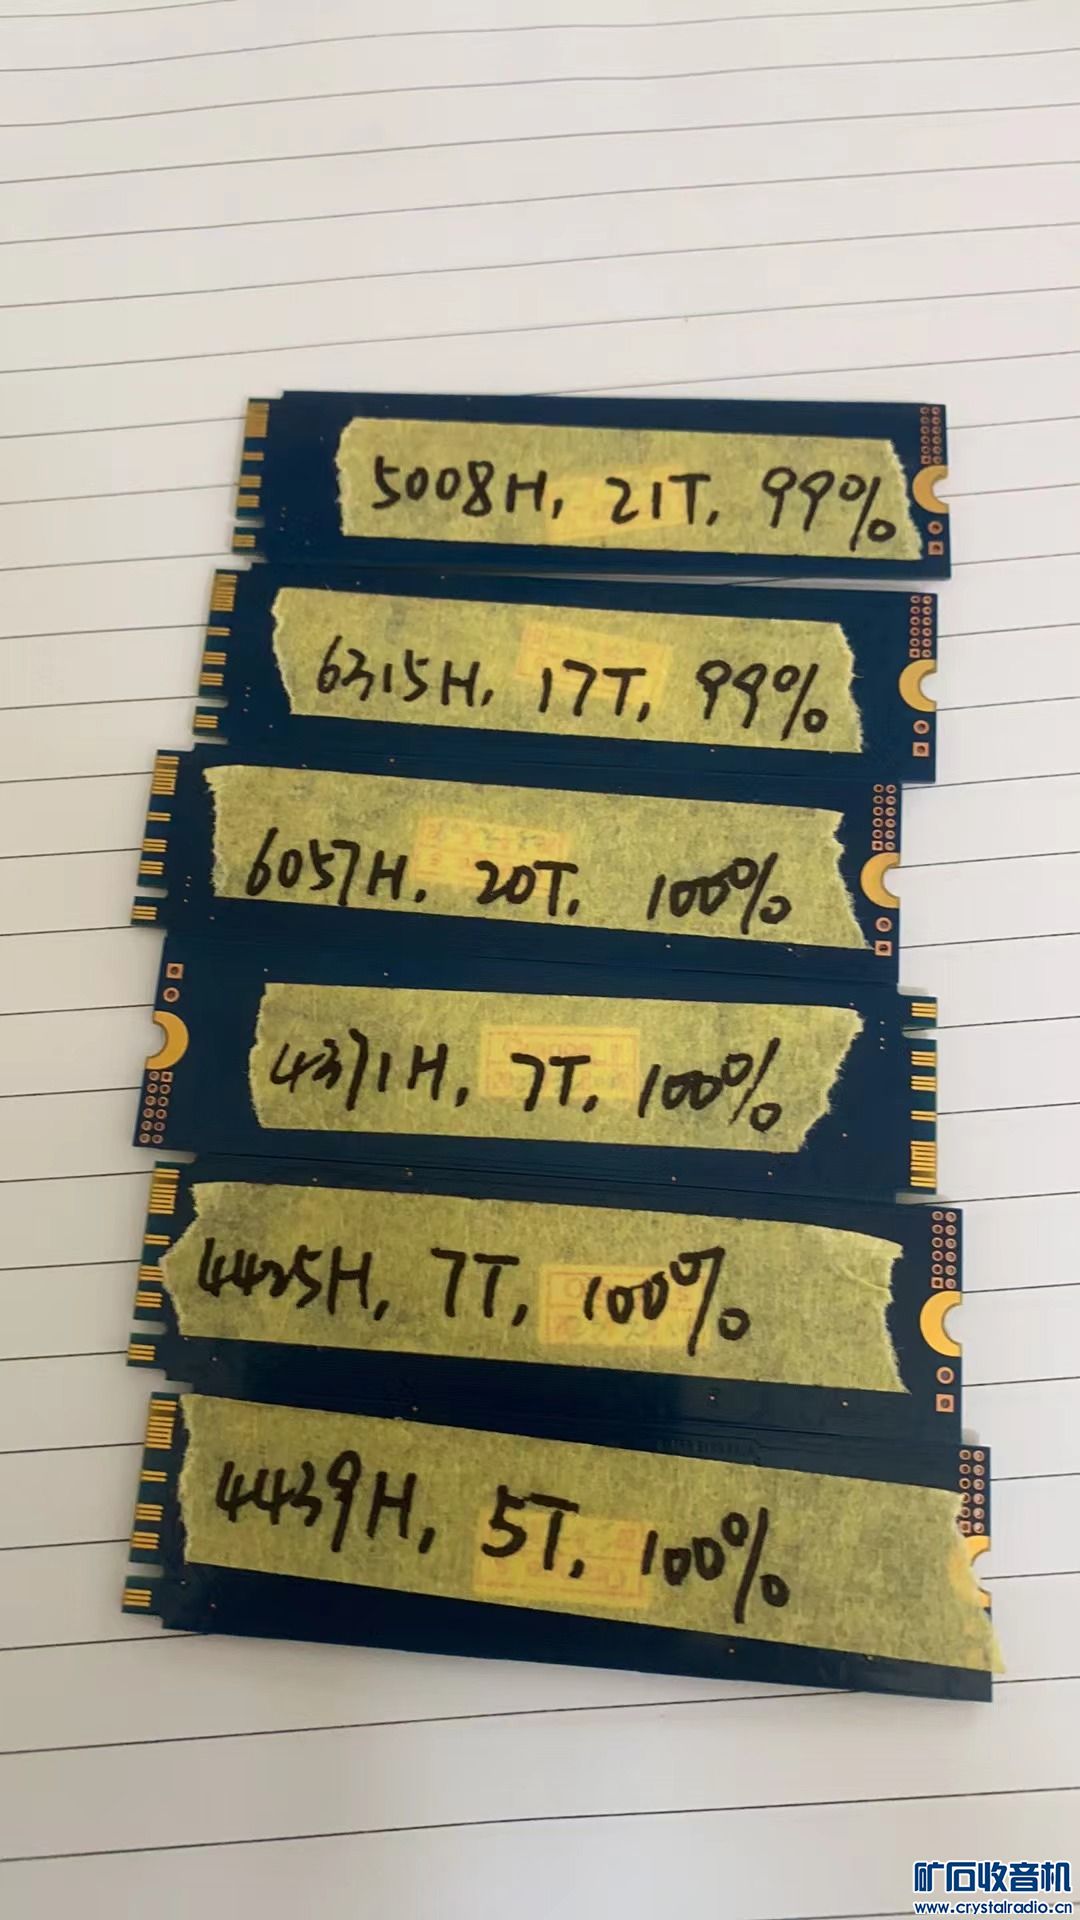 5008H, 21T, 99%
6315H, 17T, 99%
6057H, 20T, 100%
4371H, 7T, 100%
4425H, 7T, 100%
4439H, 5T, 100%
矿石收音机
www.crystalradio.cn